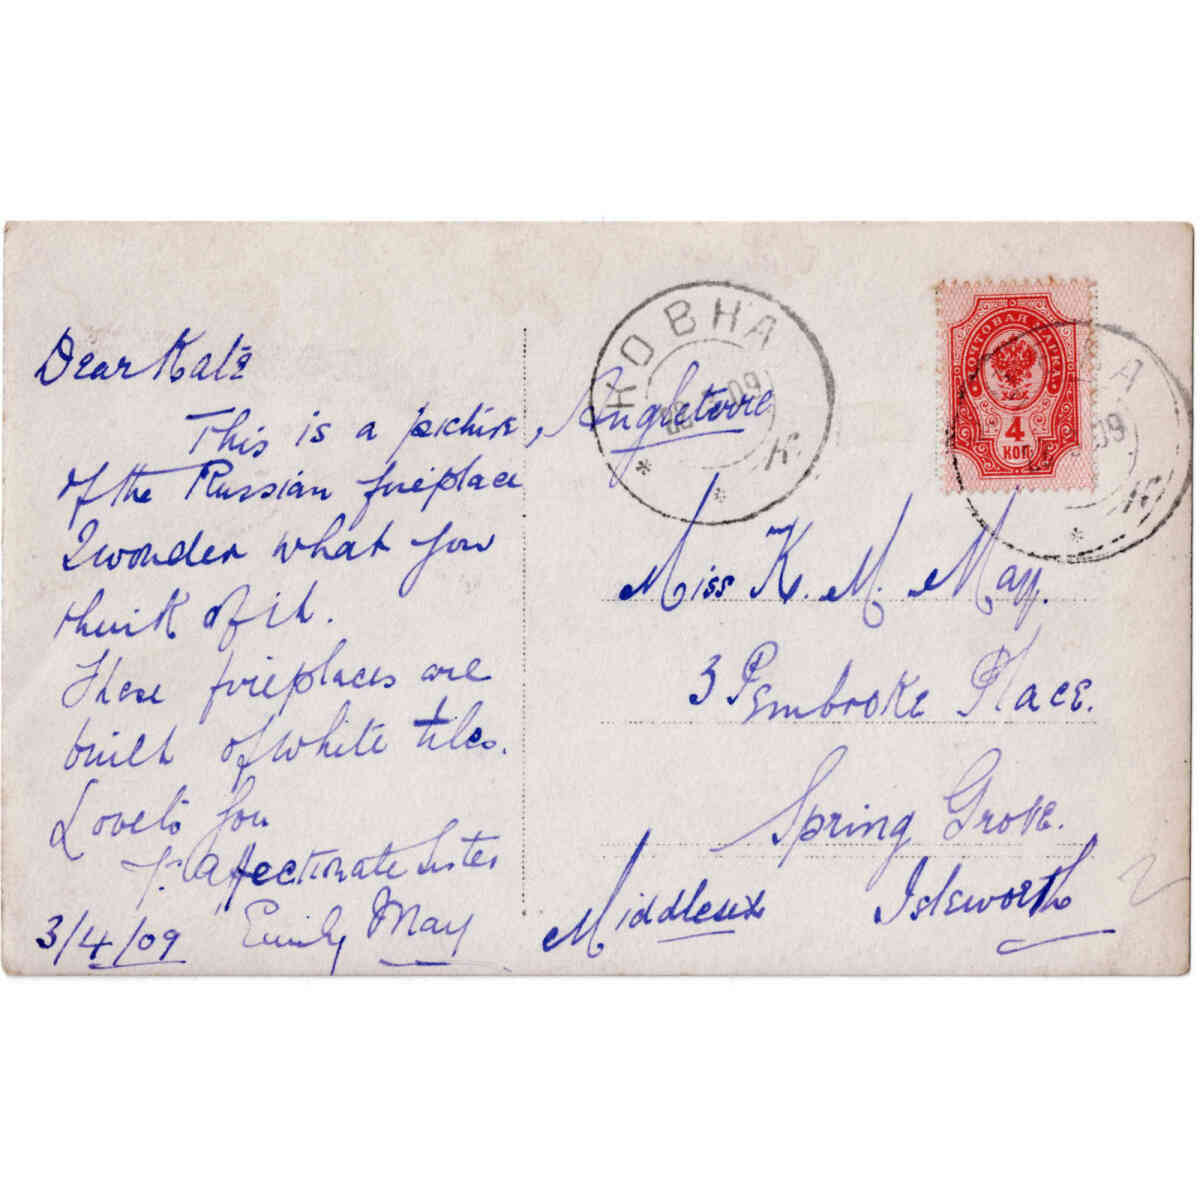 Dear Kate
This is a picture
of the Russian fireplace
I wonder what you
think of it.
These fireplaces are
built of white tiles.
Love to you
Yr affectionate Sister
Emily May
3/4/09
КОВНА
09
К.
Angleterre
ПОЧТОВАЯ МАРКА
4
КОП.
НА
09
Miss K. M. May.
3 Pembroke Place.
Spring Grove.
Isleworth
Middlesex